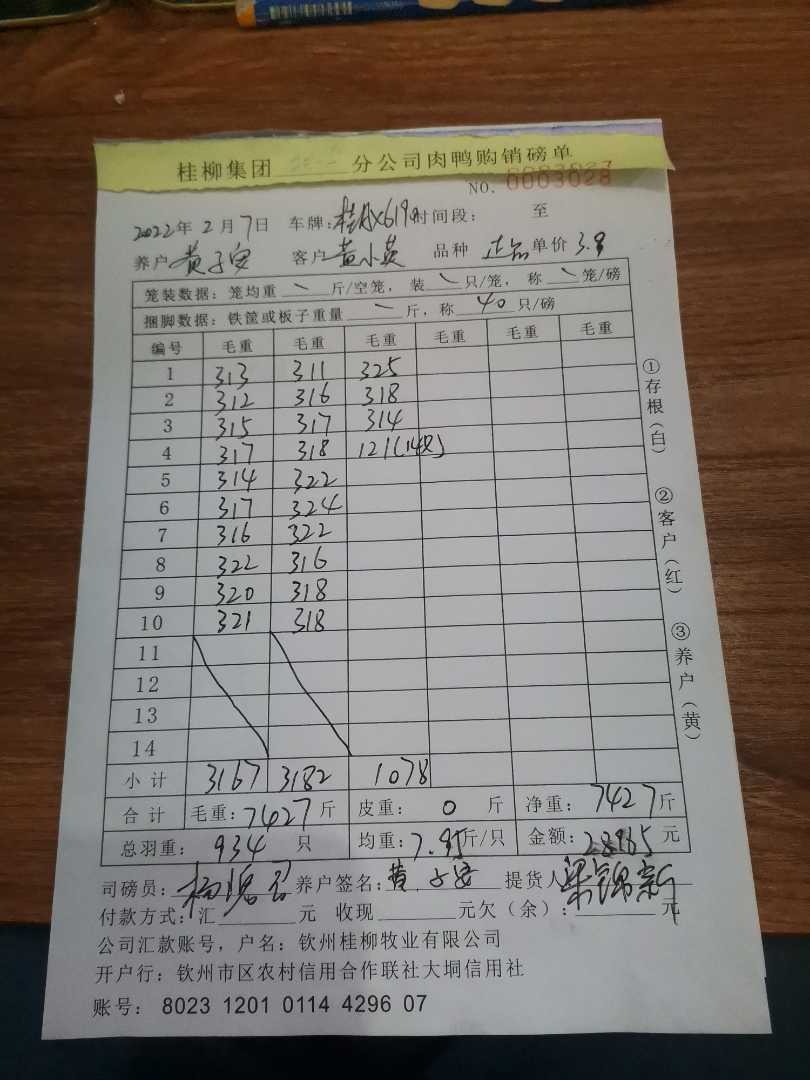 桂柳集团 分公司肉鸭购销磅单
NO. 0003028
2022年2月7日 车牌: 时间段: 至
养户 黄子安 客户 黄小英 品种 正品 单价 3.9
笼装数据: 笼均重 斤/空笼, 装 只/笼, 称 笼/磅
捆脚数据: 铁筐或板子重量 斤, 称 40 只/磅
编号 毛重 毛重 毛重 毛重 毛重 毛重
1 313 311 325
2 312 316 318
3 315 317 314
4 317 318 121(14只)
5 314 322
6 317 324
7 316 322
8 322 316
9 320 318
10 321 318
11
12
13
14
小计 3167 3182 1078
合计 毛重: 7427 斤 皮重: 0 斤 净重: 7427 斤
总羽重: 934 只 均重: 7.95 斤/只 金额: 28965 元
司磅员: 养户签名: 黄子安 提货人 梁锦新
付款方式: 汇 元 收现 元欠(余): 元
公司汇款账号, 户名: 钦州桂柳牧业有限公司
开户行: 钦州市区农村信用合作联社大垌信用社
账号: 8023 1201 0114 4296 07
①存根(白)
②客户(红)
③养户(黄)